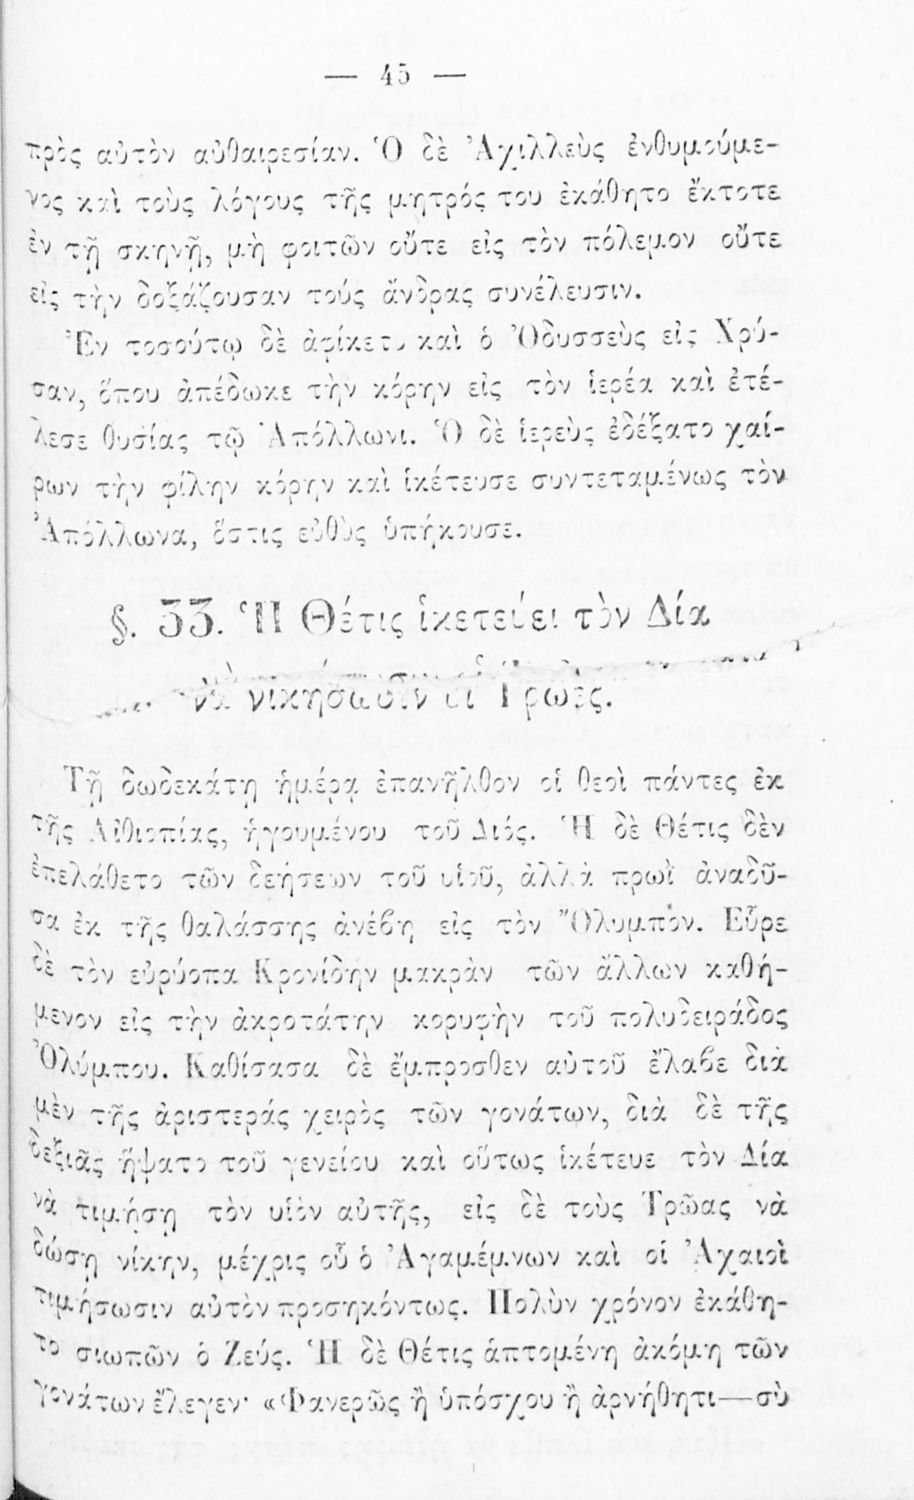 — 45 —
πρὸς αὐτὸν αὐθαιρεσίαν. Ὁ δὲ Ἀχιλλεὺς ἐνθυμούμε-
νος καὶ τοὺς λόγους τῆς μητρός του ἐκάθητο ἔκτοτε
ἐν τῇ σκηνῇ, μὴ φοιτῶν οὔτε εἰς τὸν πόλεμον οὔτε
εἰς τὴν δοξάζουσαν τούς ἄνδρας συνέλευσιν.
Ἐν τοσούτῳ δὲ ἀφίκετο καὶ ὁ Ὀδυσσεὺς εἰς Χρύ-
σαν, ὅπου ἀπέδωκε τὴν κόρην εἰς τὸν ἱερέα καὶ ἐτέ-
λεσε θυσίας τῷ Ἀπόλλωνι. Ὁ δὲ ἱερεὺς ἐδέξατο χαί-
ρων τὴν φίλην κόρην καὶ ἱκέτευσε συντεταμένως τὸν
Ἀπόλλωνα, ὅστις εὐθὺς ὑπήκουσε.
§. 33. Ἡ Θέτις ἱκετεύει τὸν Δία
νὰ νικήσωσιν οἱ Τρῶες.
Τῇ δωδεκάτῃ ἡμέρᾳ ἐπανῆλθον οἱ θεοὶ πάντες ἐκ
τῆς Αἰθιοπίας, ἡγουμένου τοῦ Διός. Ἡ δὲ Θέτις δὲν
ἐπελάθετο τῶν δεήσεων τοῦ υἱοῦ, ἀλλὰ πρωῒ ἀναδῦ-
σα ἐκ τῆς θαλάσσης ἀνέβη εἰς τὸν Ὄλυμπον. Εὗρε
δὲ τὸν εὐρύοπα Κρονίδην μακρὰν τῶν ἄλλων καθή-
μενον εἰς τὴν ἀκροτάτην κορυφὴν τοῦ πολυδειράδος
Ὀλύμπου. Καθίσασα δὲ ἔμπροσθεν αὐτοῦ ἔλαβε διὰ
μὲν τῆς ἀριστεράς χειρὸς τῶν γονάτων, διὰ δὲ τῆς
δεξιᾶς ἥψατο τοῦ γενείου καὶ οὕτως ἱκέτευε τὸν Δία
νὰ τιμήσῃ τὸν υἱὸν αὐτῆς, εἰς δὲ τοὺς Τρῶας νὰ
δώσῃ νίκην, μέχρις οὗ ὁ Ἀγαμέμνων καὶ οἱ Ἀχαιοὶ
τιμήσωσιν αὐτὸν προσηκόντως. Πολὺν χρόνον ἐκάθη-
το σιωπῶν ὁ Ζεύς. Ἡ δὲ Θέτις ἁπτομένη ἀκόμη τῶν
γονάτων ἔλεγεν· «Φανερῶς ἢ ὑπόσχου ἢ ἀρνήθητι—σὺ